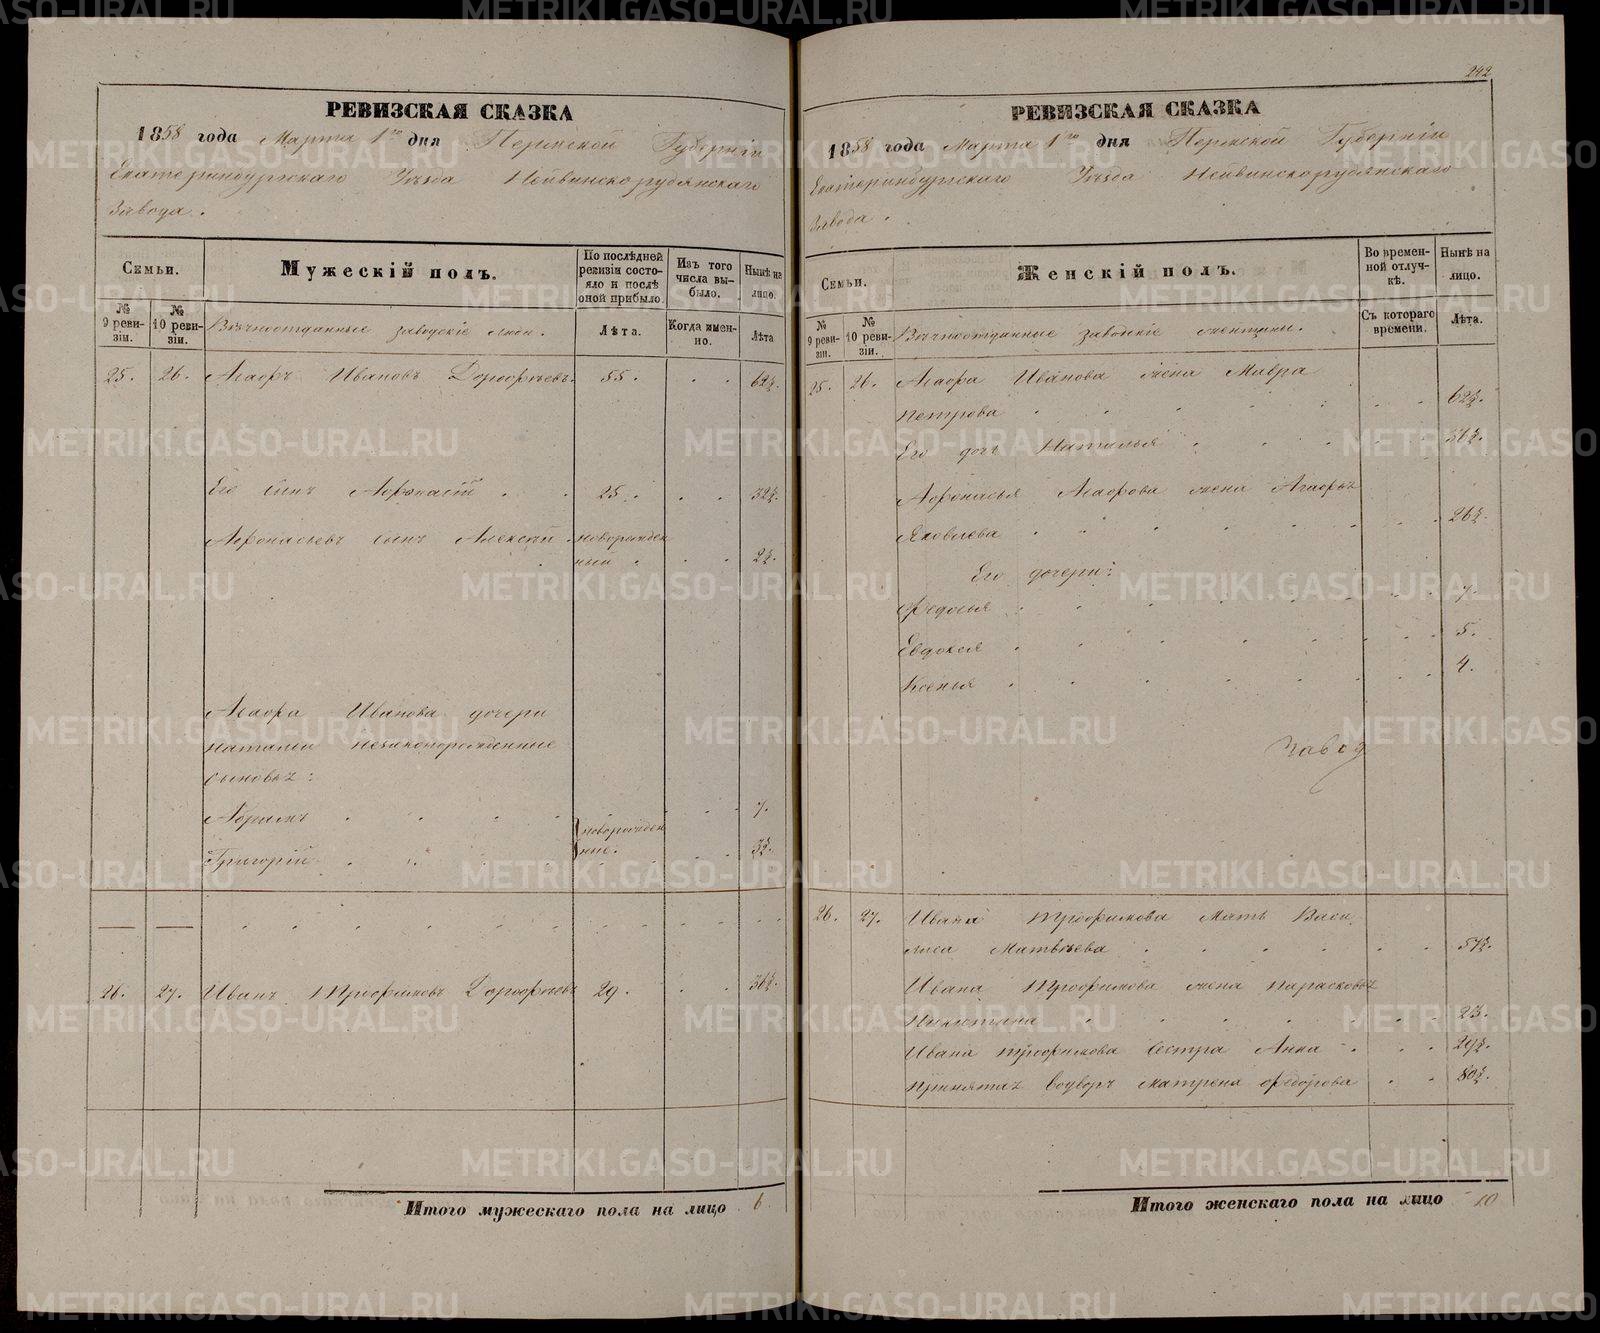 РЕВИЗСКАЯ СКАЗКА
1858 года Марта 1го дня Пермской Губерніи
Екатеринбургскаго Уѣзда Нейвинскорудянскаго
Завода.
Семьи.
Мужескій полъ.
По послѣдней ревизіи состояло и послѣ оной прибыло.
Изъ того числа выбыло.
Нынѣ на лицо.
№ 9 ревизіи.
№ 10 ревизіи.
Вѣчноотданные заводскіе люди.
Лѣта.
Когда именно.
Лѣта
25. 26. Агафъ Ивановъ Дорофѣевъ. 55. 62½.
Его сынъ Афонасій 25. 32½.
Афонасьевъ сынъ Алексѣй новорожден
ный 2½.
Агафа Иванова дочери
Натальи незаконорожденные
сыновья:
Абрамъ 7.
новорожден
ные.
Григорій 3½.
26. 27. Иванъ Трофимовъ Дорофѣевъ 29. 36½.
Итого мужескаго пола на лицо 6
242
РЕВИЗСКАЯ СКАЗКА
1858 года Марта 1го дня Пермской Губерніи
Екатеринбургскаго Уѣзда Нейвинскорудянскаго
Завода.
Семьи.
Женскій полъ.
Во временной отлучкѣ.
Нынѣ на лицо.
№ 9 ревизіи.
№ 10 ревизіи.
Вѣчноотданные заводскіе женщины.
Съ котораго времени.
Лѣта.
25. 26. Агафа Иванова жена Мавра
Петрова 62½.
Его дочь Наталья 36½.
Афонасья Агафова жена Агафья
Яковлева 26½.
Его дочери:
Федосья 7.
Евдокея 5.
Ксенья 4.
Завод
26. 27. Ивана Трофимова Мать Васи
лиса Матвѣева 57½.
Ивана Трофимова жена Парасковья
Никитина 23.
Ивана Трофимова сестра Анна 29½.
Принятая водворъ Матрена Федорова 80½.
Итого женскаго пола на лицо 10
METRIKI.GASO-URAL.RU